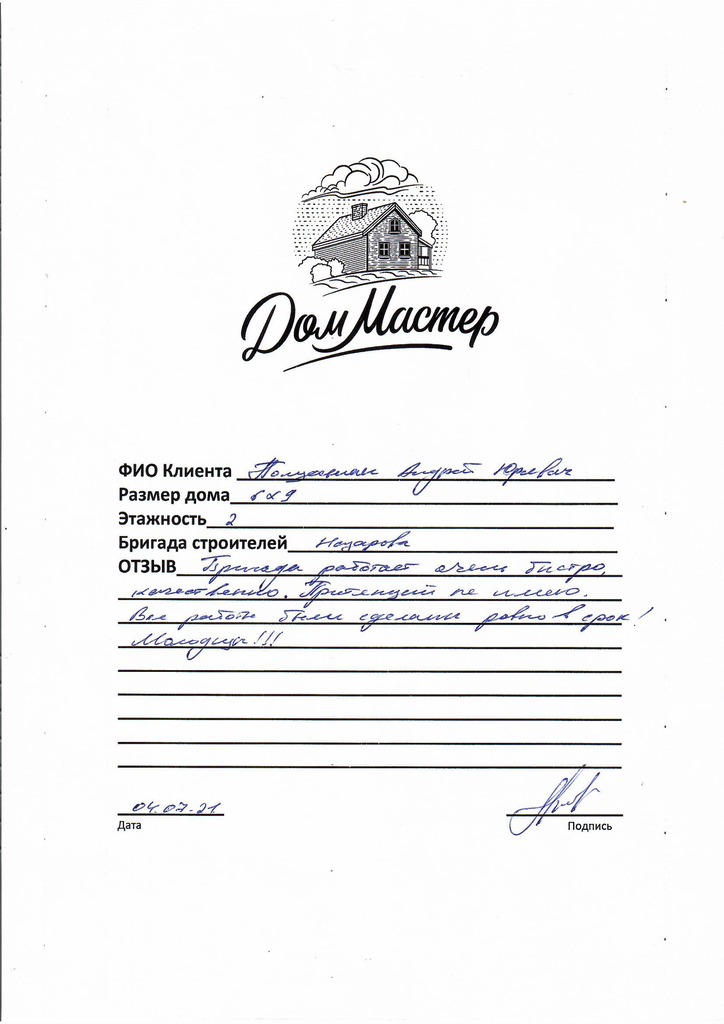 Дом Мастер
ФИО Клиента Андрей Юрьевич
Размер дома 6х9
Этажность 2
Бригада строителей Назарова
ОТЗЫВ Бригада работает очень быстро,
качественно. Притензий не имею.
Все работы были сделаны ровно в срок!
Молодцы!!!
04.07.21
Дата
Подпись